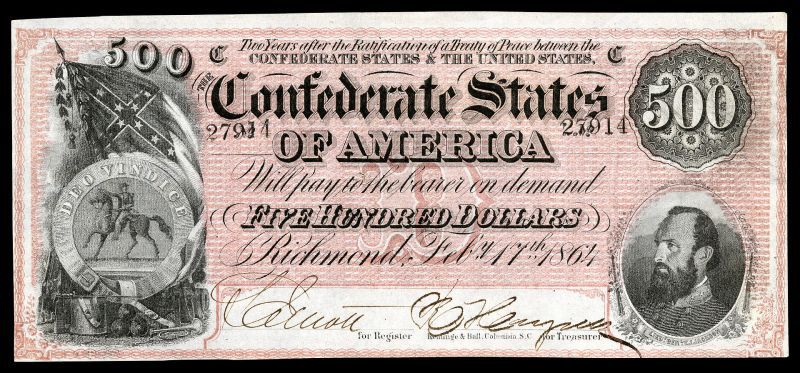 500 C Two Years after the Ratification of a Treaty of Peace between the C
CONFEDERATE STATES & THE UNITED STATES,
THE
Confederate States
500
27914 27914
OF AMERICA
DEO VINDICE
Will pay to the bearer on demand
FIVE HUNDRED DOLLARS
Richmond, Feby. 17th 1864
for Register Keatinge & Ball, Columbia, S.C. for Treasurer